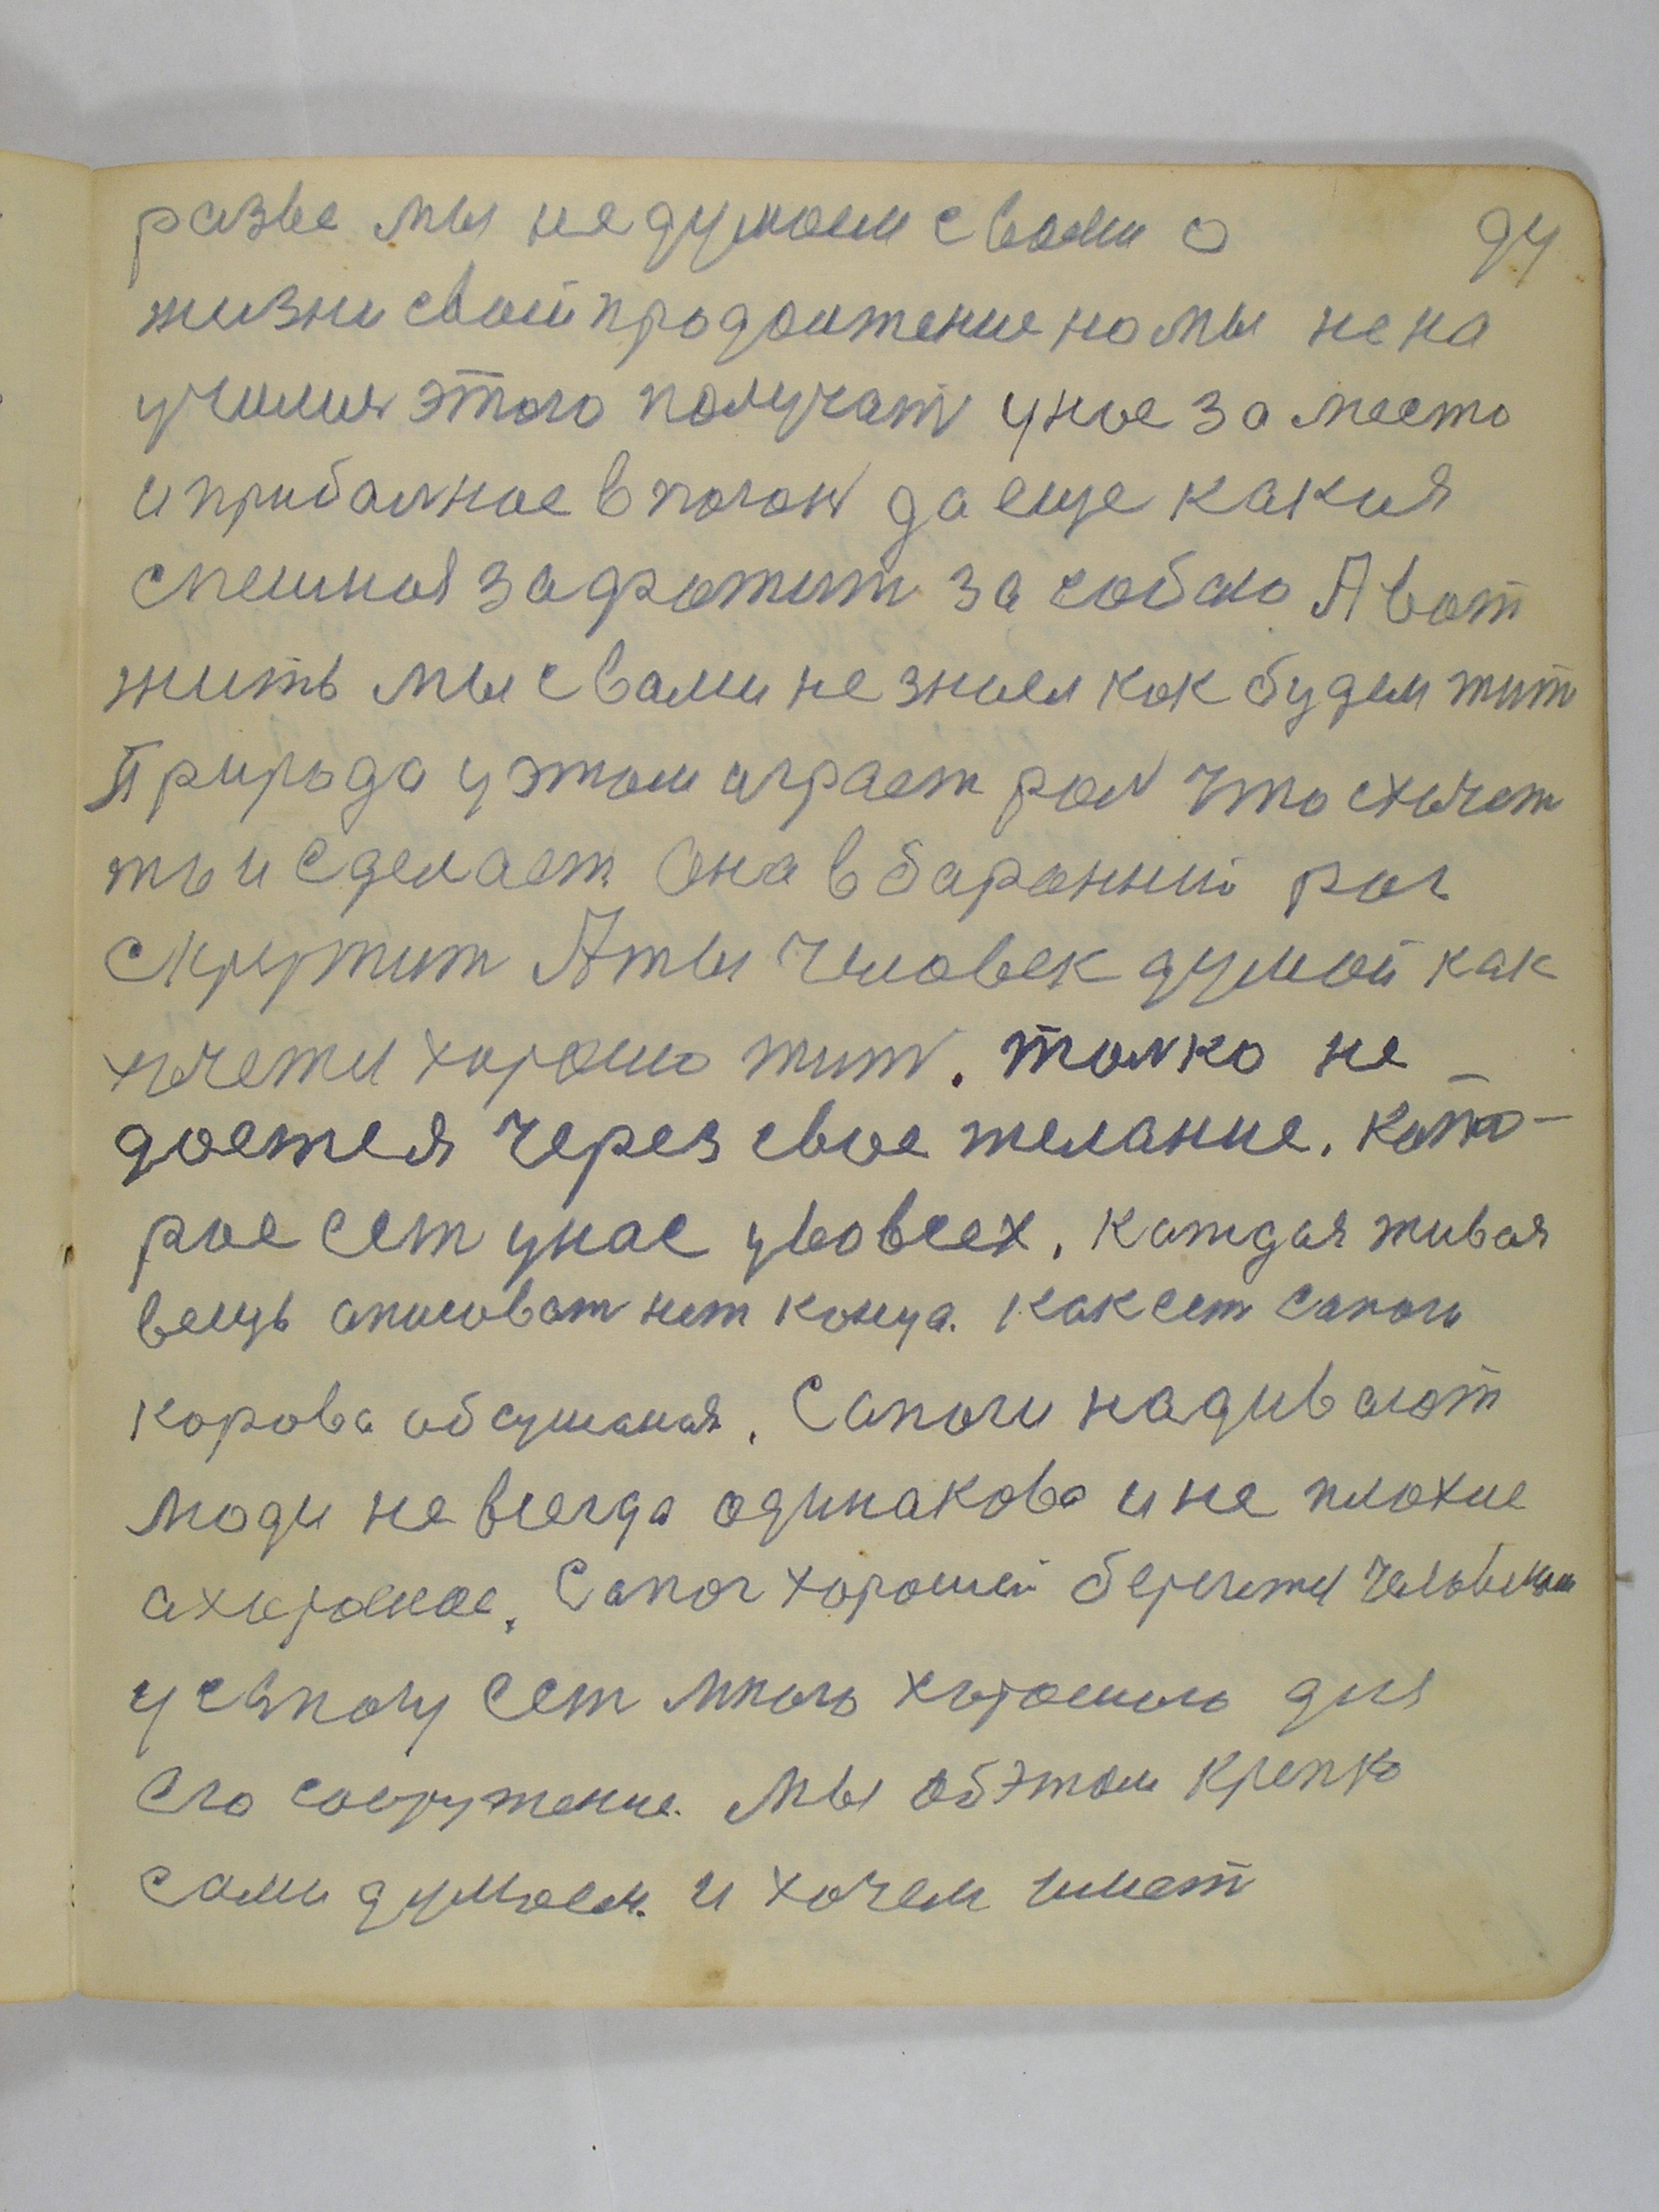 разве мы не думаем с вами о 94
жизни своей продолжение но мы не на
учились этого получать у нас за место
и прибальное в погонь да еще какия
смешная задрожит за собою А вот
жить мы с вами не знаем как будем жит
Природа у этом играет рол что схочет
то и сделает. Она в баранний рог
скрутит А ты человек думой как
хочетси хорошо жить. толко не
дается через свое желание. Кото-
рое ест у нас у во всех. Каждая живая
вещь описоват нет конца. Как ест сапоги
корова обсушеная. Сапоги надивают
люди не всегда одинакова и не плохие
а хорошие. Сапог хороший бережеты человеком
у сапогу ест много хорошого для
его сооружение. Мы об этом крепко
сами думаем. и хочем имет